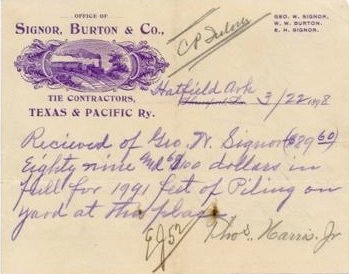 OFFICE OF
SIGNOR, BURTON & CO.,
GEO. W. SIGNOR,
W. W. BURTON,
E. H. SIGNOR.
TIE CONTRACTORS,
TEXAS & PACIFIC RY.
Hatfield Ark
3/22 1898
Recieved of Geo. W. Signor ($89 60)
Eighty nine and 60/100 dollars in
full for 1991 feet of Piling on
yard at this place
Thos. Harris. Jr